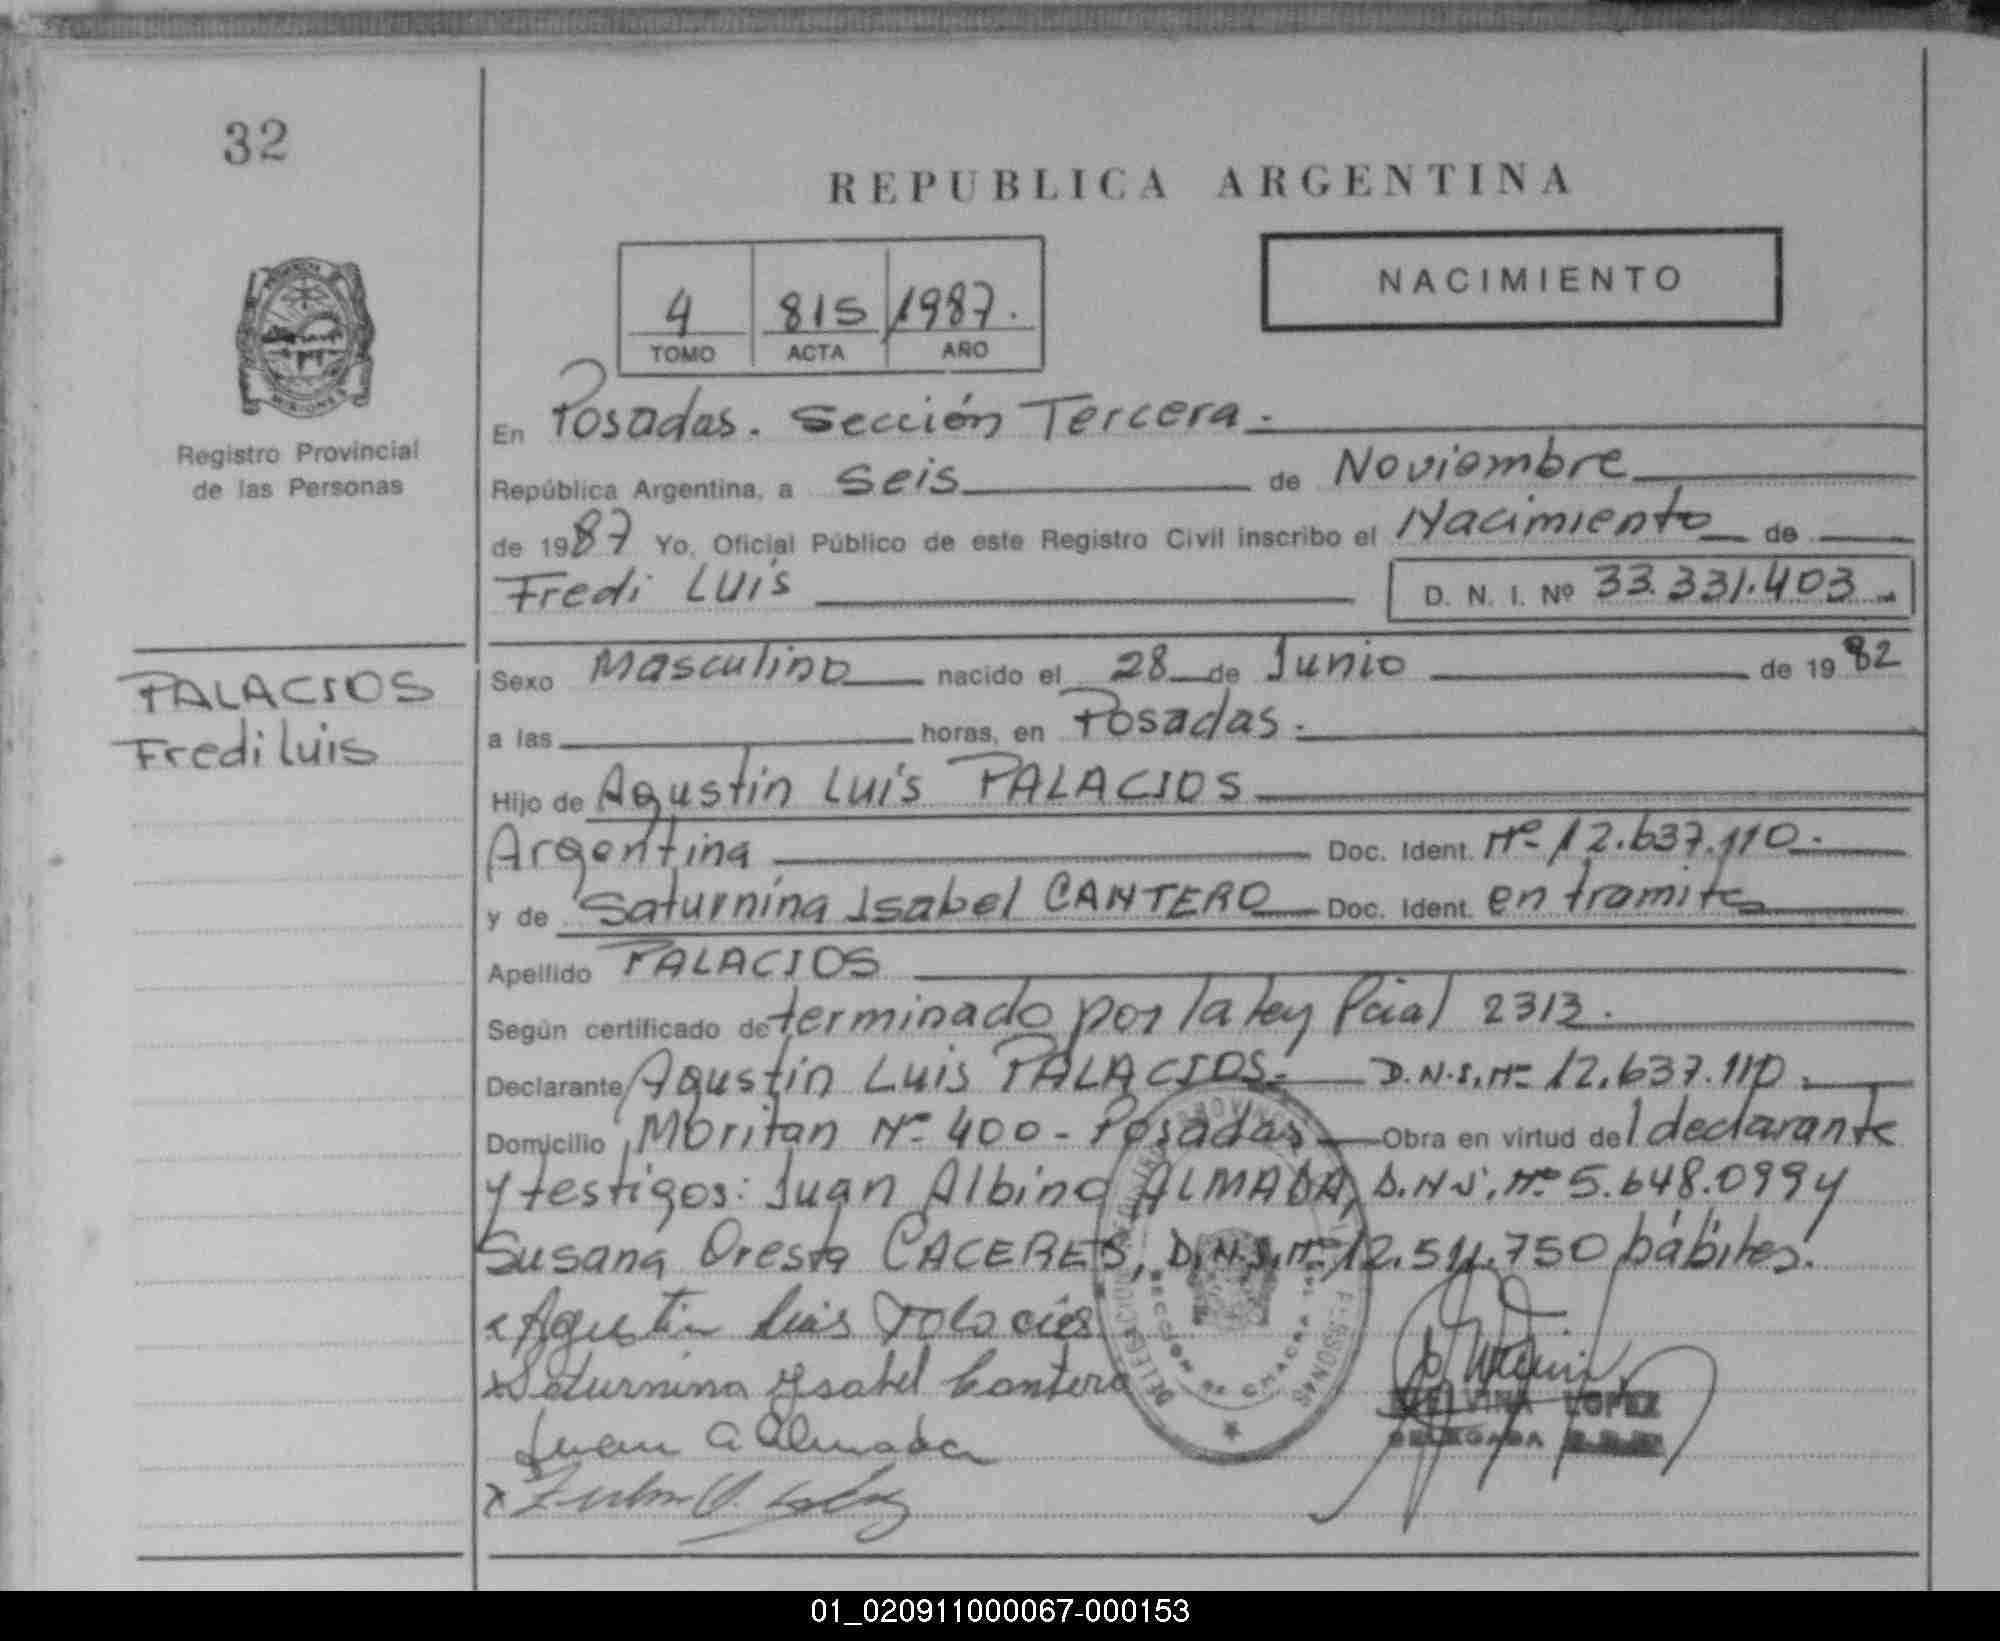 32
REPUBLICA ARGENTINA
NACIMIENTO
4 815 1987.
TOMO ACTA AÑO
Registro Provincial
de las Personas
En Posadas. Sección Tercera.
República Argentina, a Seis de Noviembre
de 1987 Yo, Oficial Público de este Registro Civil inscribo el Nacimiento de
Fredi Luis D. N. I. Nº 33.331.403
PALACIOS
Fredi Luis
Sexo Masculino nacido el 28 de Junio de 1982
a las horas, en Posadas.
Hijo de Agustin Luis PALACIOS
Argentina Doc. Ident. Nº 12.637.110.
y de Saturnina Isabel CANTERO Doc. Ident. en tramite
Apellido PALACIOS
Según certificado determinado por la ley Pcial 2313.
Declarante Agustin Luis PALACIOS. D.N.I. Nº 12.637.110.
Domicilio Moritan Nº 400 - Posadas Obra en virtud del declarante
y testigos: Juan Albino ALMADA, D.N.I. Nº 5.648.099 y
Susana Oresta CACERES, D.N.I. Nº 12.511.750 hábiles.
Agustin Luis Palacios
Saturnina Ysabel Cantero
Juan A Almada
LOPEZ
DELEGADA
01_020911000067-000153